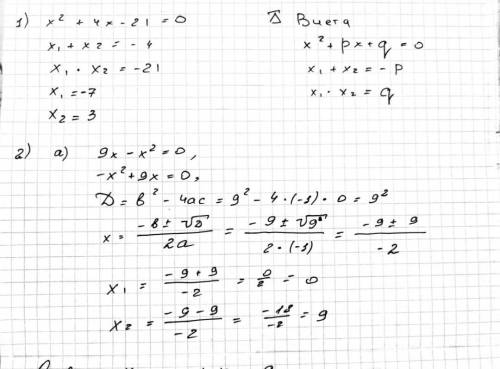 1) x² + 4x - 21 = 0
x₁ + x₂ = - 4
x₁ · x₂ = -21
x₁ = -7
x₂ = 3
Виета
x² + px + q = 0
x₁ + x₂ = - p
x₁ · x₂ = q
2) а) 9x - x² = 0,
-x² + 9x = 0,
D = b² - 4ac = 9² - 4·(-1)·0 = 9²
x = (-b ± √D)/2a = (-9 ± √9²)/(2·(-1)) = (-9 ± 9)/-2
x₁ = (-9 + 9)/-2 = 0/2 = 0
x₂ = (-9 - 9)/-2 = -18/-2 = 9